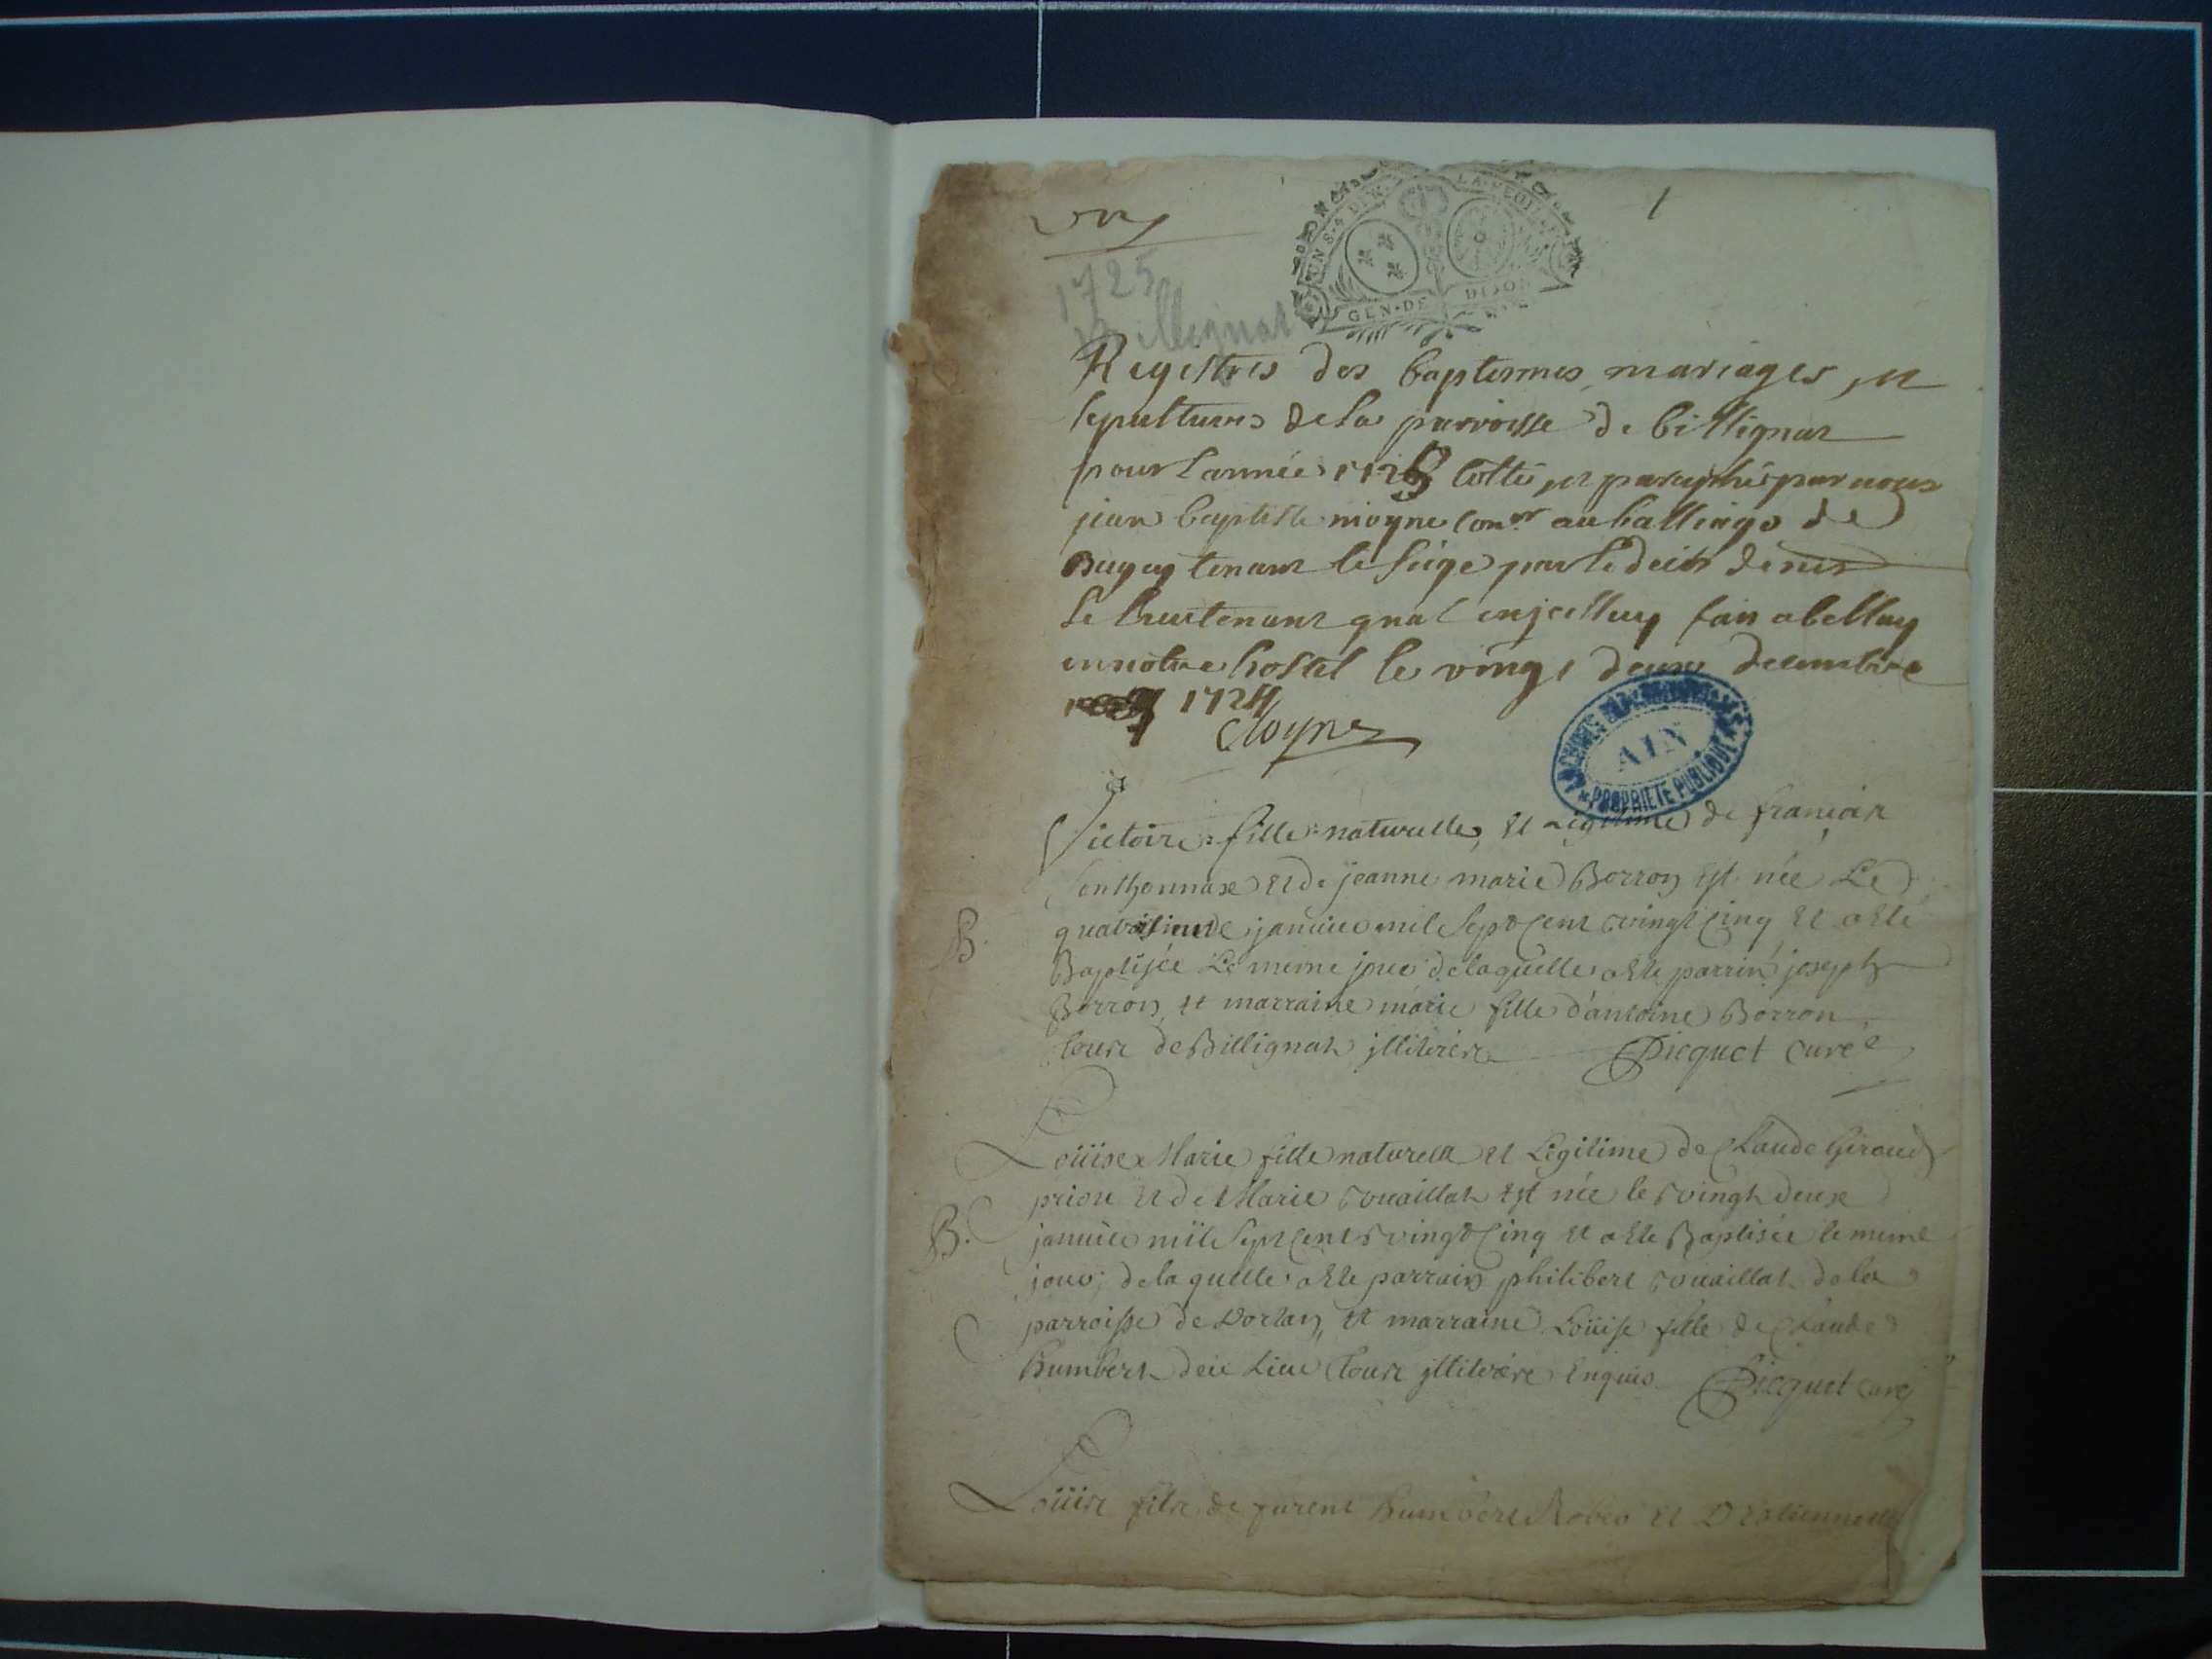 1
GEN·DE DIJON
1725
Billignat
Registres des baptesmes mariages et
sepultures de la parroisse de billignat
pour l'année 1725 cotté et paraphé par nous
jean baptiste moyne con.er au balliage de
Bugey tenant le siege par le deceds de mr
le lieutenant gnal en jcelluy fait a belley
en notre hostel le vingt deux decembre
1724
Moyne
ARCHIVES DEPARTEMENTALES
AIN
PROPRIETE PUBLIQUE
Victoire fille naturelle, et Legitime de françois
Sonthonnax et de jeanne marie Borron est née Le
B. de janvier mil Sept Cent vingt Cinq et a esté
Baptisée Le meme jour de laquelle a este parrin joseph
Borron et marraine marie fille d'antoine Borron
tous de Billignat jllitérés Picquet Curé
Loüise Marie fille naturelle et Légitime de Claude Giroud
et de Marie Vuaillat est née le vingt deux
B. janvier mil Sept Cent vingt Cinq et a este Baptisée le meme
jour, de laquelle a este parrain philibert Vuaillat de la
parroisse de Dortan, et marraine Loüise fille de Claude
humbert dud lieu tous jllitérés Enquis Picquet curé
Loüise fille de furent humbert et D'estiennette